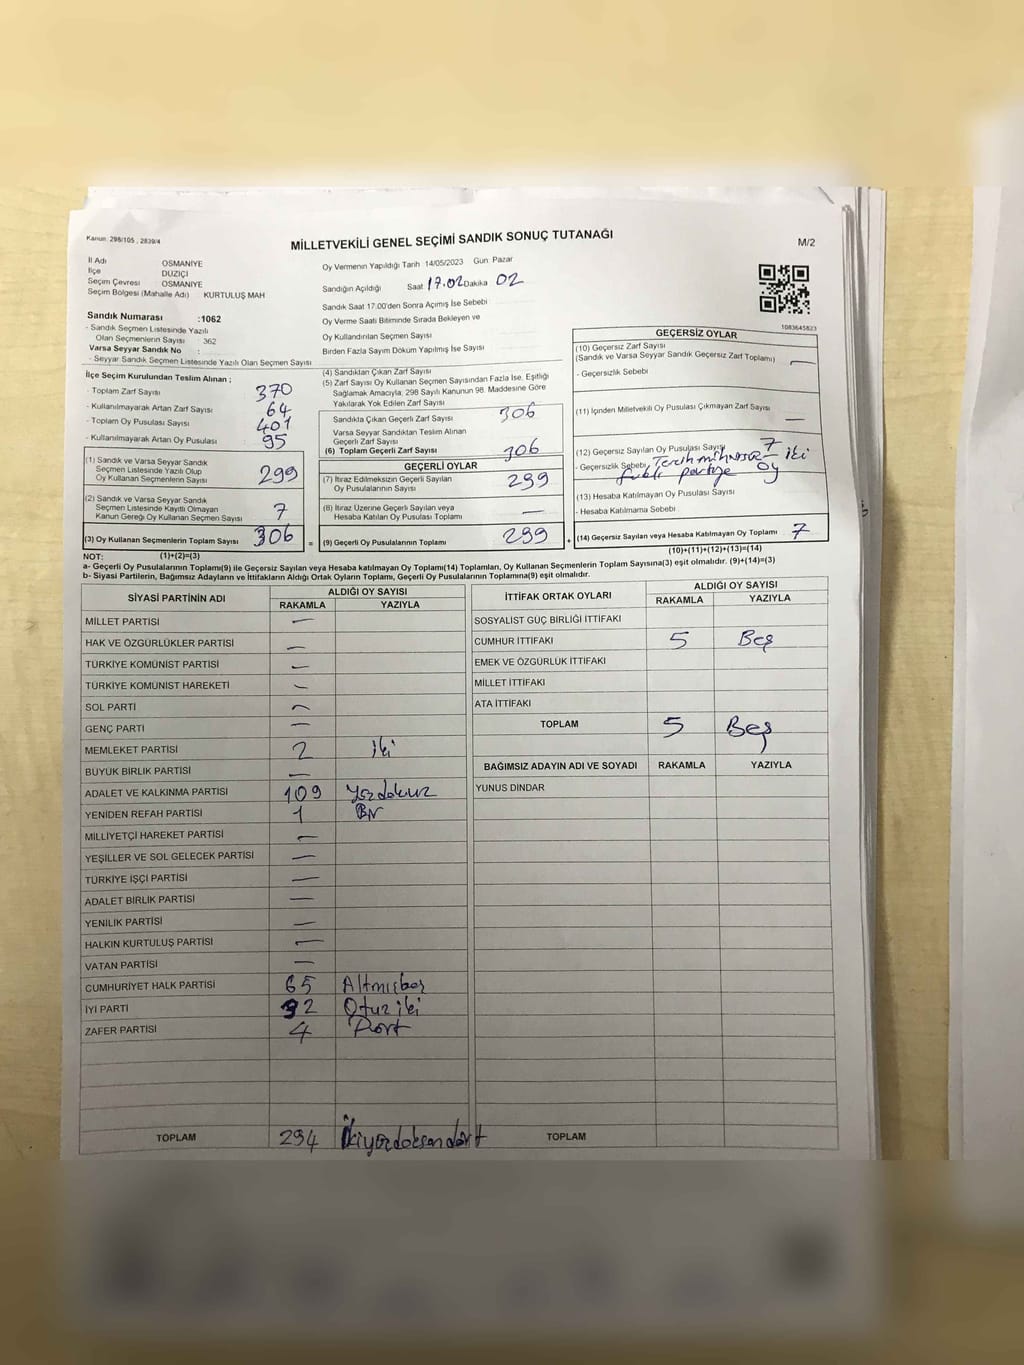 Kanun: 298/105 , 2839/4
MİLLETVEKİLİ GENEL SEÇİMİ SANDIK SONUÇ TUTANAĞI
M/2
İl Adı OSMANİYE
İlçe DÜZİÇİ
Seçim Çevresi OSMANİYE
Seçim Bölgesi (Mahalle Adı) KURTULUŞ MAH
Sandık Numarası :1062
- Sandık Seçmen Listesinde Yazılı
Olan Seçmenlerin Sayısı : 362
Varsa Seyyar Sandık No :
- Seyyar Sandık Seçmen Listesinde Yazılı Olan Seçmen Sayısı
Oy Vermenin Yapıldığı Tarih 14/05/2023 Gün: Pazar
Sandığın Açıldığı Saat 17.02 Dakika 02
Sandık Saat 17:00'den Sonra Açılmış İse Sebebi
Oy Verme Saati Bitiminde Sırada Bekleyen ve
Oy Kullandırılan Seçmen Sayısı
Birden Fazla Sayım Döküm Yapılmış İse Sayısı
1083645823
İlçe Seçim Kurulundan Teslim Alınan ;
- Toplam Zarf Sayısı 370
- Kullanılmayarak Artan Zarf Sayısı 64
- Toplam Oy Pusulası Sayısı 401
- Kullanılmayarak Artan Oy Pusulası 95
(1) Sandık ve Varsa Seyyar Sandık
Seçmen Listesinde Yazılı Olup
Oy Kullanan Seçmenlerin Sayısı 299
(2) Sandık ve Varsa Seyyar Sandık
Seçmen Listesinde Kayıtlı Olmayan
Kanun Gereği Oy Kullanan Seçmen Sayısı 7
(3) Oy Kullanan Seçmenlerin Toplam Sayısı 306
(4) Sandıktan Çıkan Zarf Sayısı
(5) Zarf Sayısı Oy Kullanan Seçmen Sayısından Fazla İse, Eşitliği
Sağlamak Amacıyla; 298 Sayılı Kanunun 98. Maddesine Göre
Yakılarak Yok Edilen Zarf Sayısı
Sandıkta Çıkan Geçerli Zarf Sayısı 306
Varsa Seyyar Sandıktan Teslim Alınan
Geçerli Zarf Sayısı
(6) Toplam Geçerli Zarf Sayısı 306
GEÇERLİ OYLAR
(7) İtiraz Edilmeksizin Geçerli Sayılan
Oy Pusulalarının Sayısı 299
(8) İtiraz Üzerine Geçerli Sayılan veya
Hesaba Katılan Oy Pusulası Toplamı —
= (9) Geçerli Oy Pusulalarının Toplamı 299 +
GEÇERSİZ OYLAR
(10) Geçersiz Zarf Sayısı
(Sandık ve Varsa Seyyar Sandık Geçersiz Zarf Toplamı) —
- Geçersizlik Sebebi
(11) İçinden Milletvekili Oy Pusulası Çıkmayan Zarf Sayısı —
(12) Geçersiz Sayılan Oy Pusulası Sayısı 7
- Geçersizlik Sebebi Tercih mührü iki
farklı partiye oy
(13) Hesaba Katılmayan Oy Pusulası Sayısı
- Hesaba Katılmama Sebebi
(14) Geçersiz Sayılan veya Hesaba Katılmayan Oy Toplamı 7
NOT: (1)+(2)=(3)
(10)+(11)+(12)+(13)=(14)
a- Geçerli Oy Pusulalarının Toplamı(9) ile Geçersiz Sayılan veya Hesaba katılmayan Oy Toplamı(14) Toplamları, Oy Kullanan Seçmenlerin Toplam Sayısına(3) eşit olmalıdır. (9)+(14)=(3)
b- Siyasi Partilerin, Bağımsız Adayların ve İttifakların Aldığı Ortak Oyların Toplamı, Geçerli Oy Pusulalarının Toplamına(9) eşit olmalıdır.
SİYASİ PARTİNİN ADI ALDIĞI OY SAYISI
RAKAMLA YAZIYLA
MİLLET PARTİSİ —
HAK VE ÖZGÜRLÜKLER PARTİSİ —
TÜRKİYE KOMÜNİST PARTİSİ —
TÜRKİYE KOMÜNİST HAREKETİ —
SOL PARTİ —
GENÇ PARTİ —
MEMLEKET PARTİSİ 2 iki
BÜYÜK BİRLİK PARTİSİ —
ADALET VE KALKINMA PARTİSİ 109 Yüzdokuz
YENİDEN REFAH PARTİSİ 1 Bir
MİLLİYETÇİ HAREKET PARTİSİ —
YEŞİLLER VE SOL GELECEK PARTİSİ —
TÜRKİYE İŞÇİ PARTİSİ —
ADALET BİRLİK PARTİSİ —
YENİLİK PARTİSİ —
HALKIN KURTULUŞ PARTİSİ —
VATAN PARTİSİ —
CUMHURİYET HALK PARTİSİ 65 Altmışbeş
İYİ PARTİ 92 Otuz iki
ZAFER PARTİSİ 4 Dört
TOPLAM 294 İkiyüzdoksandört
İTTİFAK ORTAK OYLARI ALDIĞI OY SAYISI
RAKAMLA YAZIYLA
SOSYALİST GÜÇ BİRLİĞİ İTTİFAKI
CUMHUR İTTİFAKI 5 Beş
EMEK VE ÖZGÜRLÜK İTTİFAKI
MİLLET İTTİFAKI
ATA İTTİFAKI
TOPLAM 5 Beş
BAĞIMSIZ ADAYIN ADI VE SOYADI RAKAMLA YAZIYLA
YUNUS DİNDAR
TOPLAM